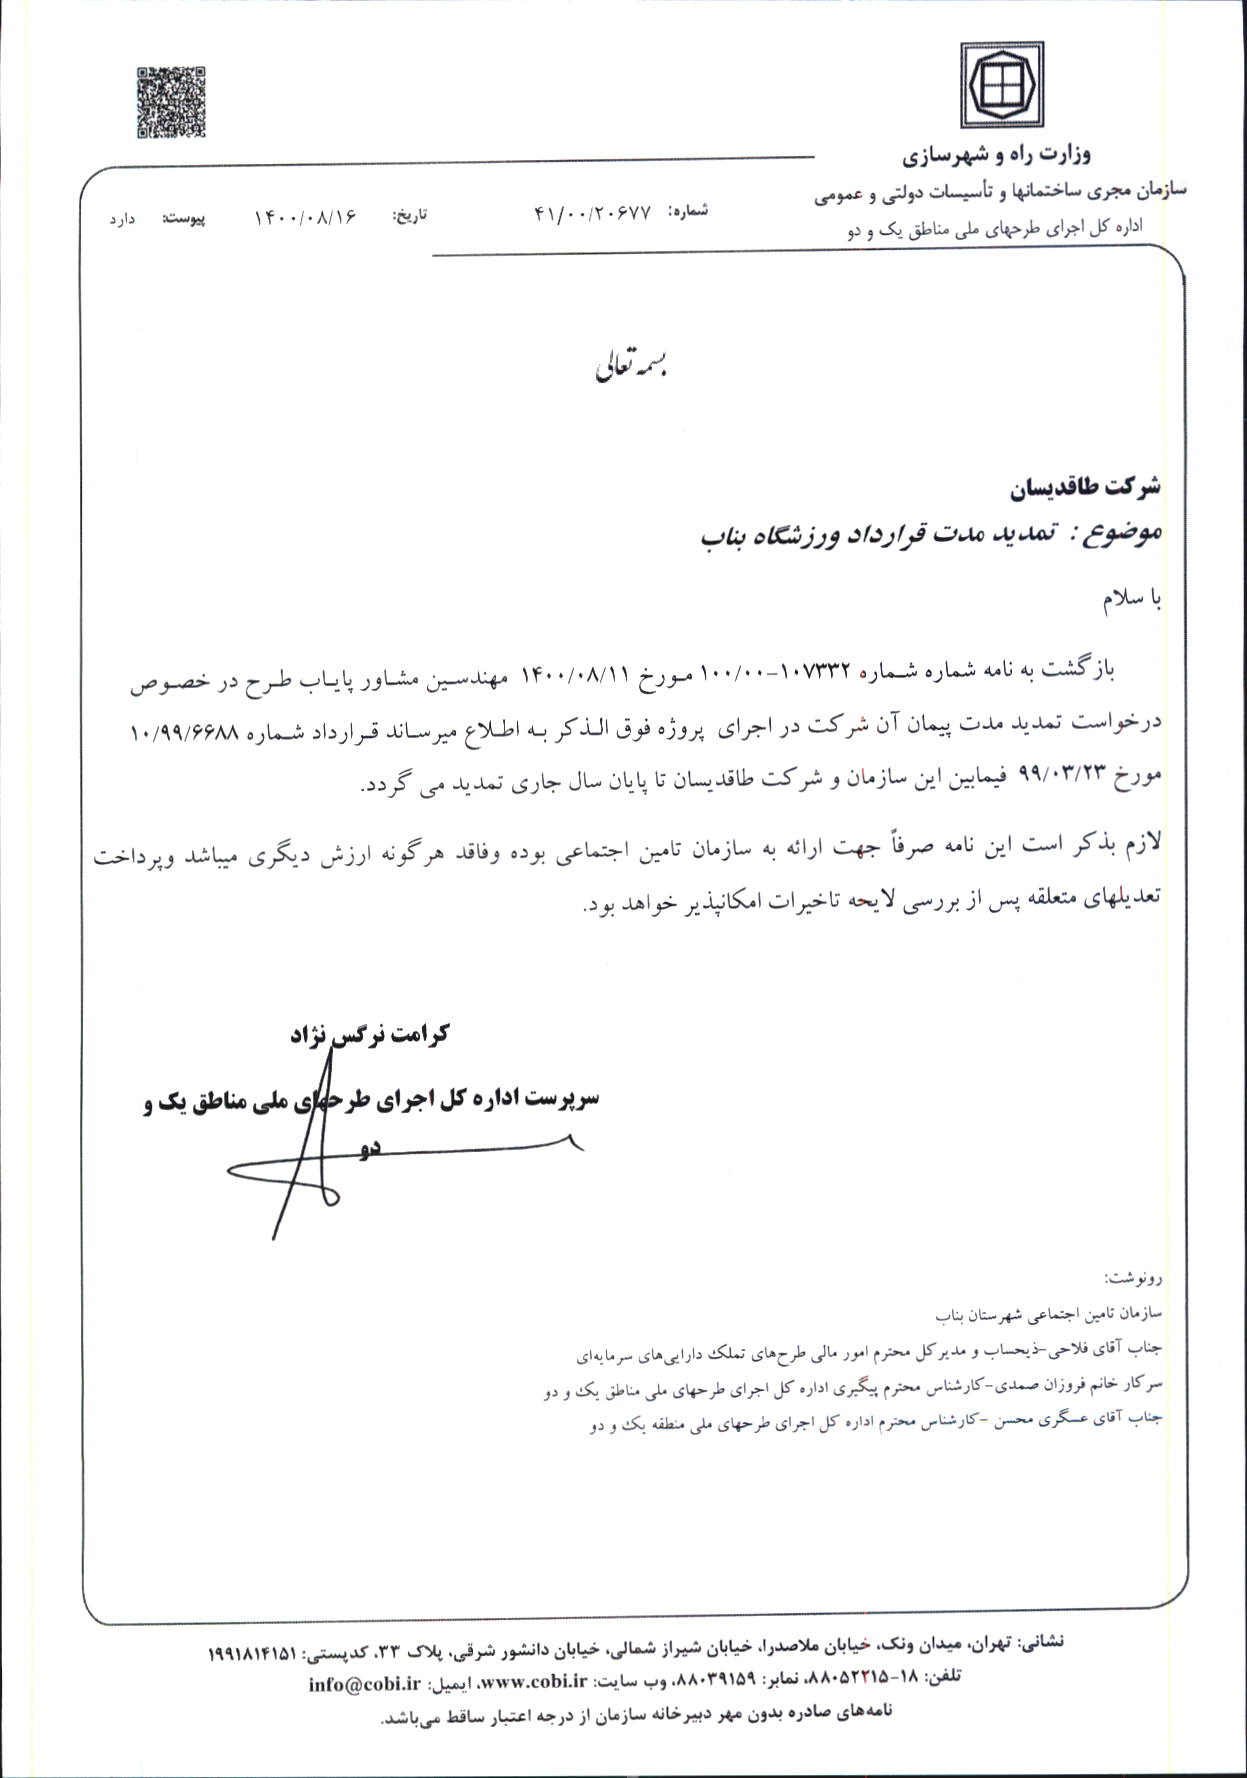 وزارت راه و شهرسازی
سازمان مجری ساختمانها و تأسیسات دولتی و عمومی
اداره کل اجرای طرحهای ملی مناطق یک و دو
شماره: ۴۱/۰۰/۲۰۶۷۷ تاریخ: ۱۴۰۰/۰۸/۱۶ پیوست: دارد
بسمه تعالی
شرکت طاقدیسان
موضوع : تمدید مدت قرارداد ورزشگاه بناب
با سلام
بازگشت به نامه شماره شماره ۱۰۷۳۳۲-۱۰۰/۰۰ مورخ ۱۴۰۰/۰۸/۱۱ مهندسین مشاور پایاب طرح در خصوص
درخواست تمدید مدت پیمان آن شرکت در اجرای پروژه فوق الذکر به اطلاع میرساند قرارداد شماره ۱۰/۹۹/۶۶۸۸
مورخ ۹۹/۰۳/۲۳ فیمابین این سازمان و شرکت طاقدیسان تا پایان سال جاری تمدید می گردد.
لازم بذکر است این نامه صرفاً جهت ارائه به سازمان تامین اجتماعی بوده وفاقد هرگونه ارزش دیگری میباشد وپرداخت
تعدیلهای متعلقه پس از بررسی لایحه تاخیرات امکانپذیر خواهد بود.
کرامت نرگس نژاد
سرپرست اداره کل اجرای طرحهای ملی مناطق یک و
دو
رونوشت:
سازمان تامین اجتماعی شهرستان بناب
جناب آقای فلاحی-ذیحساب و مدیرکل محترم امور مالی طرح‌های تملک دارایی‌های سرمایه‌ای
سرکار خانم فروزان صمدی-کارشناس محترم پیگیری اداره کل اجرای طرحهای ملی مناطق یک و دو
جناب آقای عسگری محسن -کارشناس محترم اداره کل اجرای طرحهای ملی منطقه یک و دو
نشانی: تهران، میدان ونک، خیابان ملاصدرا، خیابان شیراز شمالی، خیابان دانشور شرقی، پلاک ۳۳، کدپستی: ۱۹۹۱۸۱۴۱۵۱
تلفن: ۱۸-۸۸۰۵۲۲۱۵، نمابر: ۸۸۰۳۹۱۵۹، وب سایت: www.cobi.ir، ایمیل: info@cobi.ir
نامه‌های صادره بدون مهر دبیرخانه سازمان از درجه اعتبار ساقط می‌باشد.